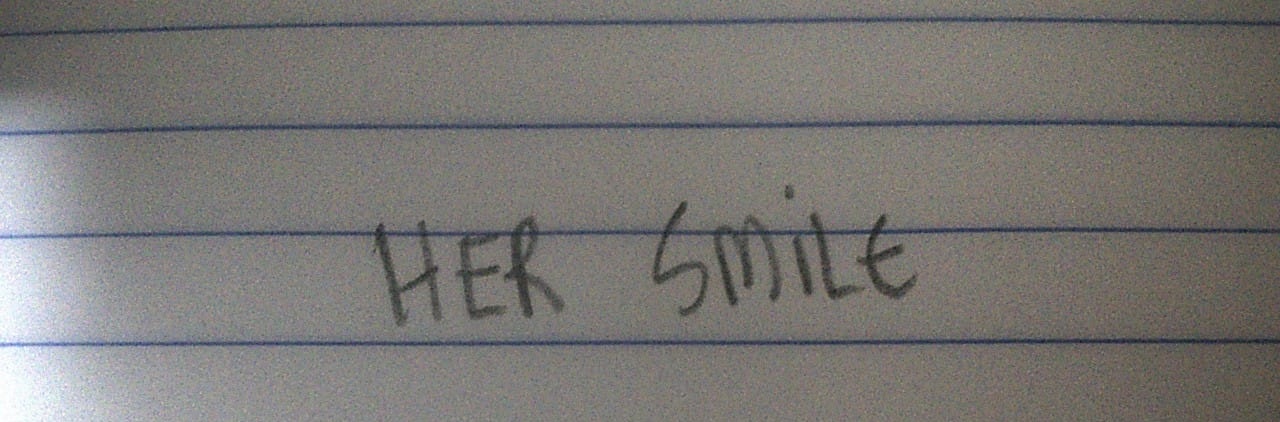 HER SMiLE